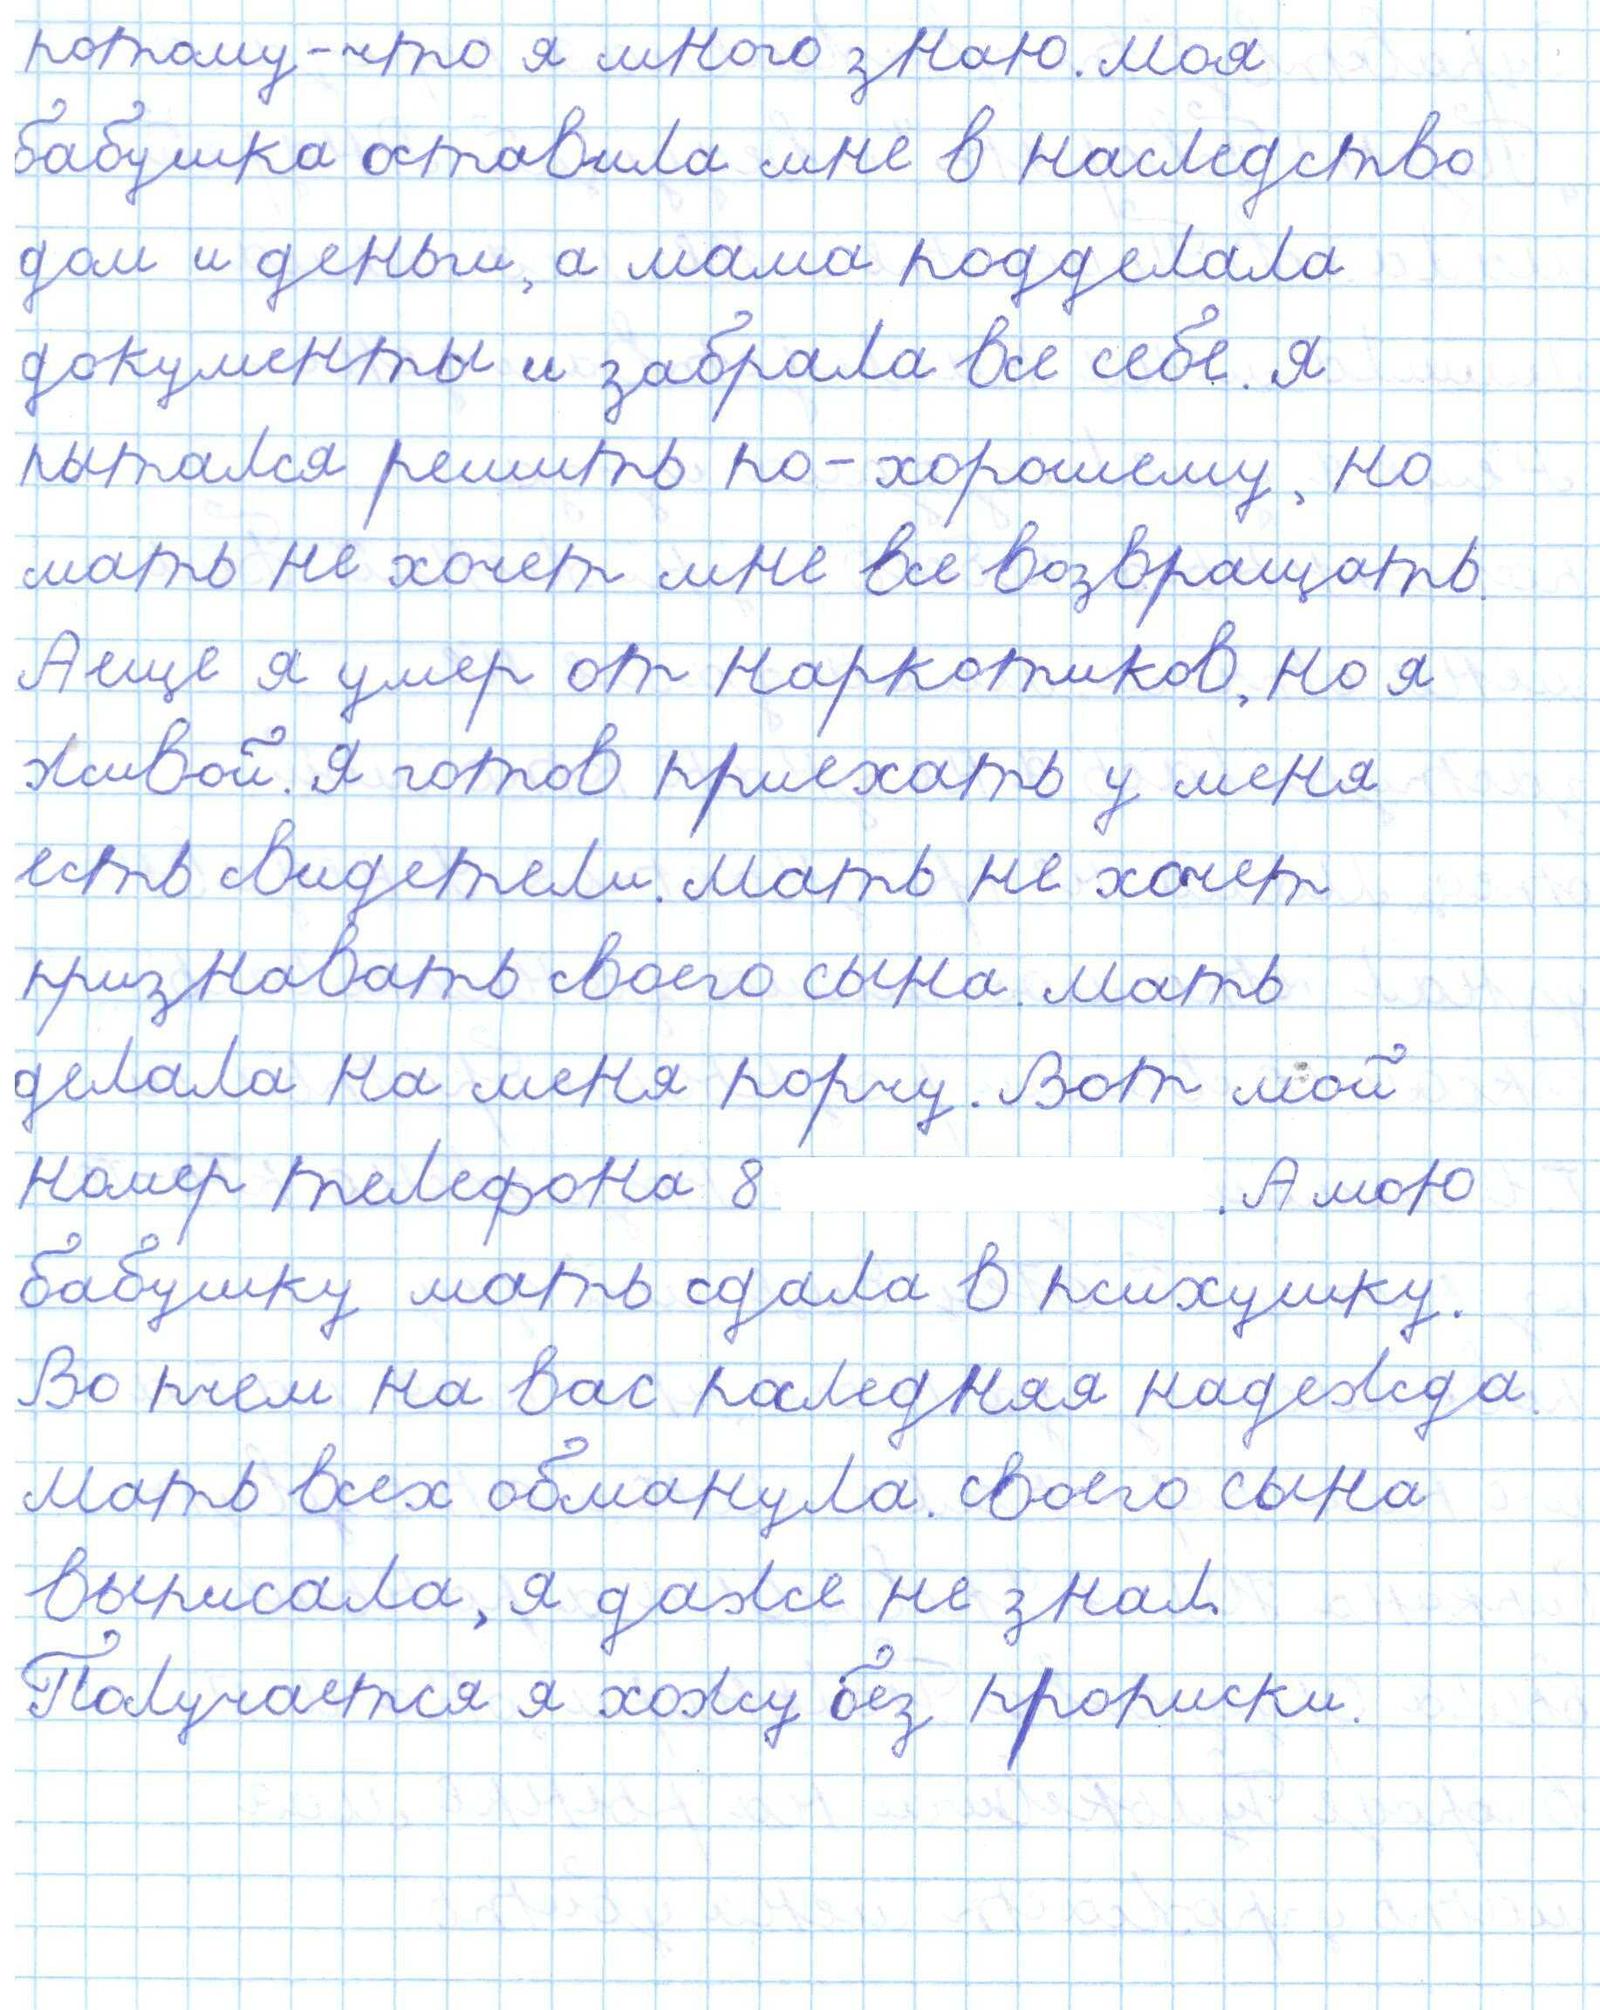 потому-что я много знаю. Моя
бабушка оставила мне в наследство
дом и деньги, а мама подделала
документы и забрала все себе. Я
пытался решить по-хорошему, но
мать не хочет мне все возвращать.
А еще я умер от наркотиков, но я
живой. Я готов приехать у меня
есть свидетели. Мать не хочет
признавать своего сына. Мать
делала на меня порчу. Вот мой
номер телефона 8 . А мою
бабушку мать сдала в психушку.
Во пчем на вас последняя надежда.
Мать всех обманула. своего сына
выписала, я даже не знал.
Получается я хожу без прописки.